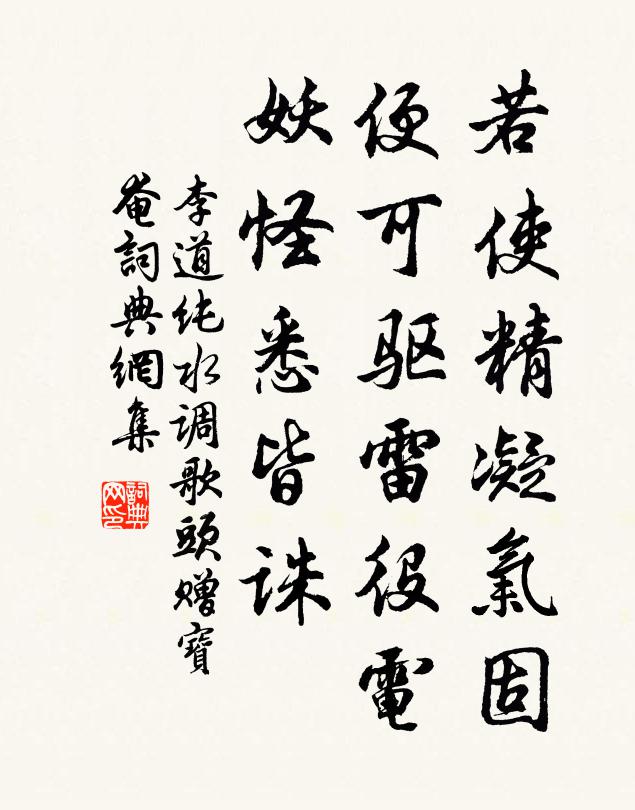 若使精凝氣固
便可驱雷役電
妖怪悉皆誅
李道纯水调歌頭赠寶
奄詞典網集
詞典网印